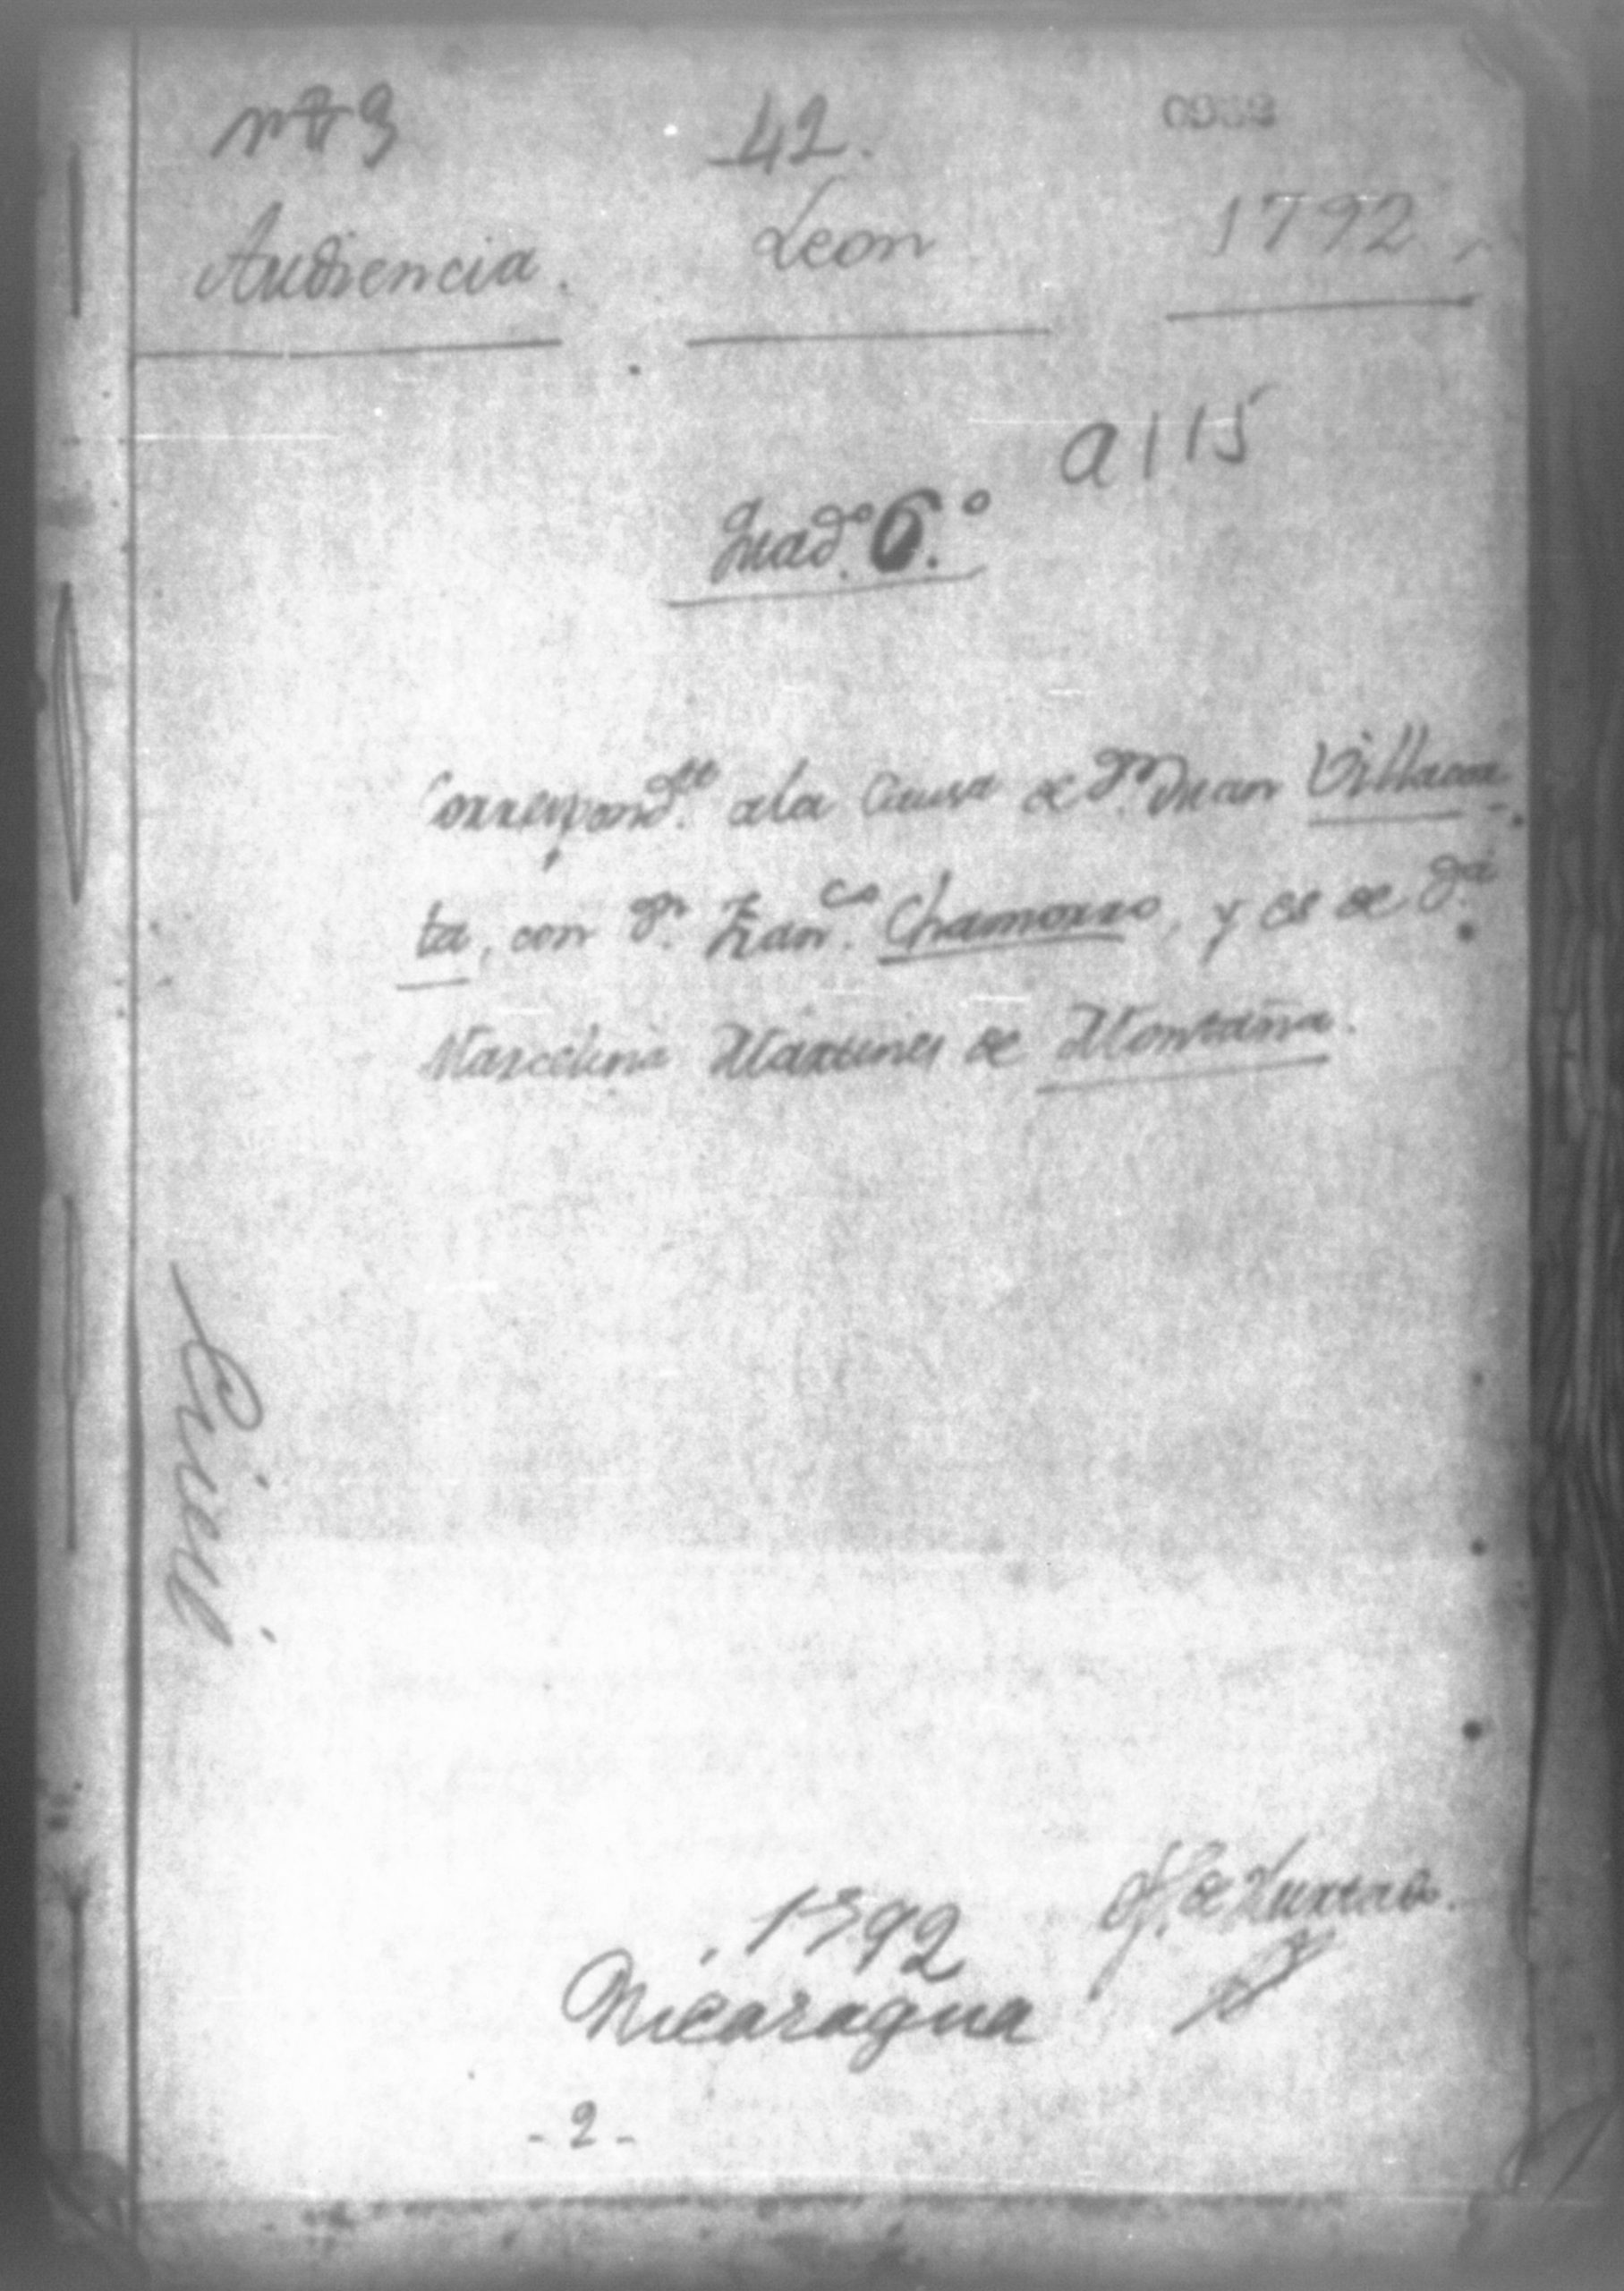 42.
Audiencia. Leon 1792
a 115
Quad.º 6.º
Correspond.te ala Causa de D.n Juan Villacor-
ta, con D.n Fran.co Chamorro, y es de D.a
Marcelina Martines de Montaña.
Civil
1792
Nicaragua
Of. de Hurtado.
- 2 -